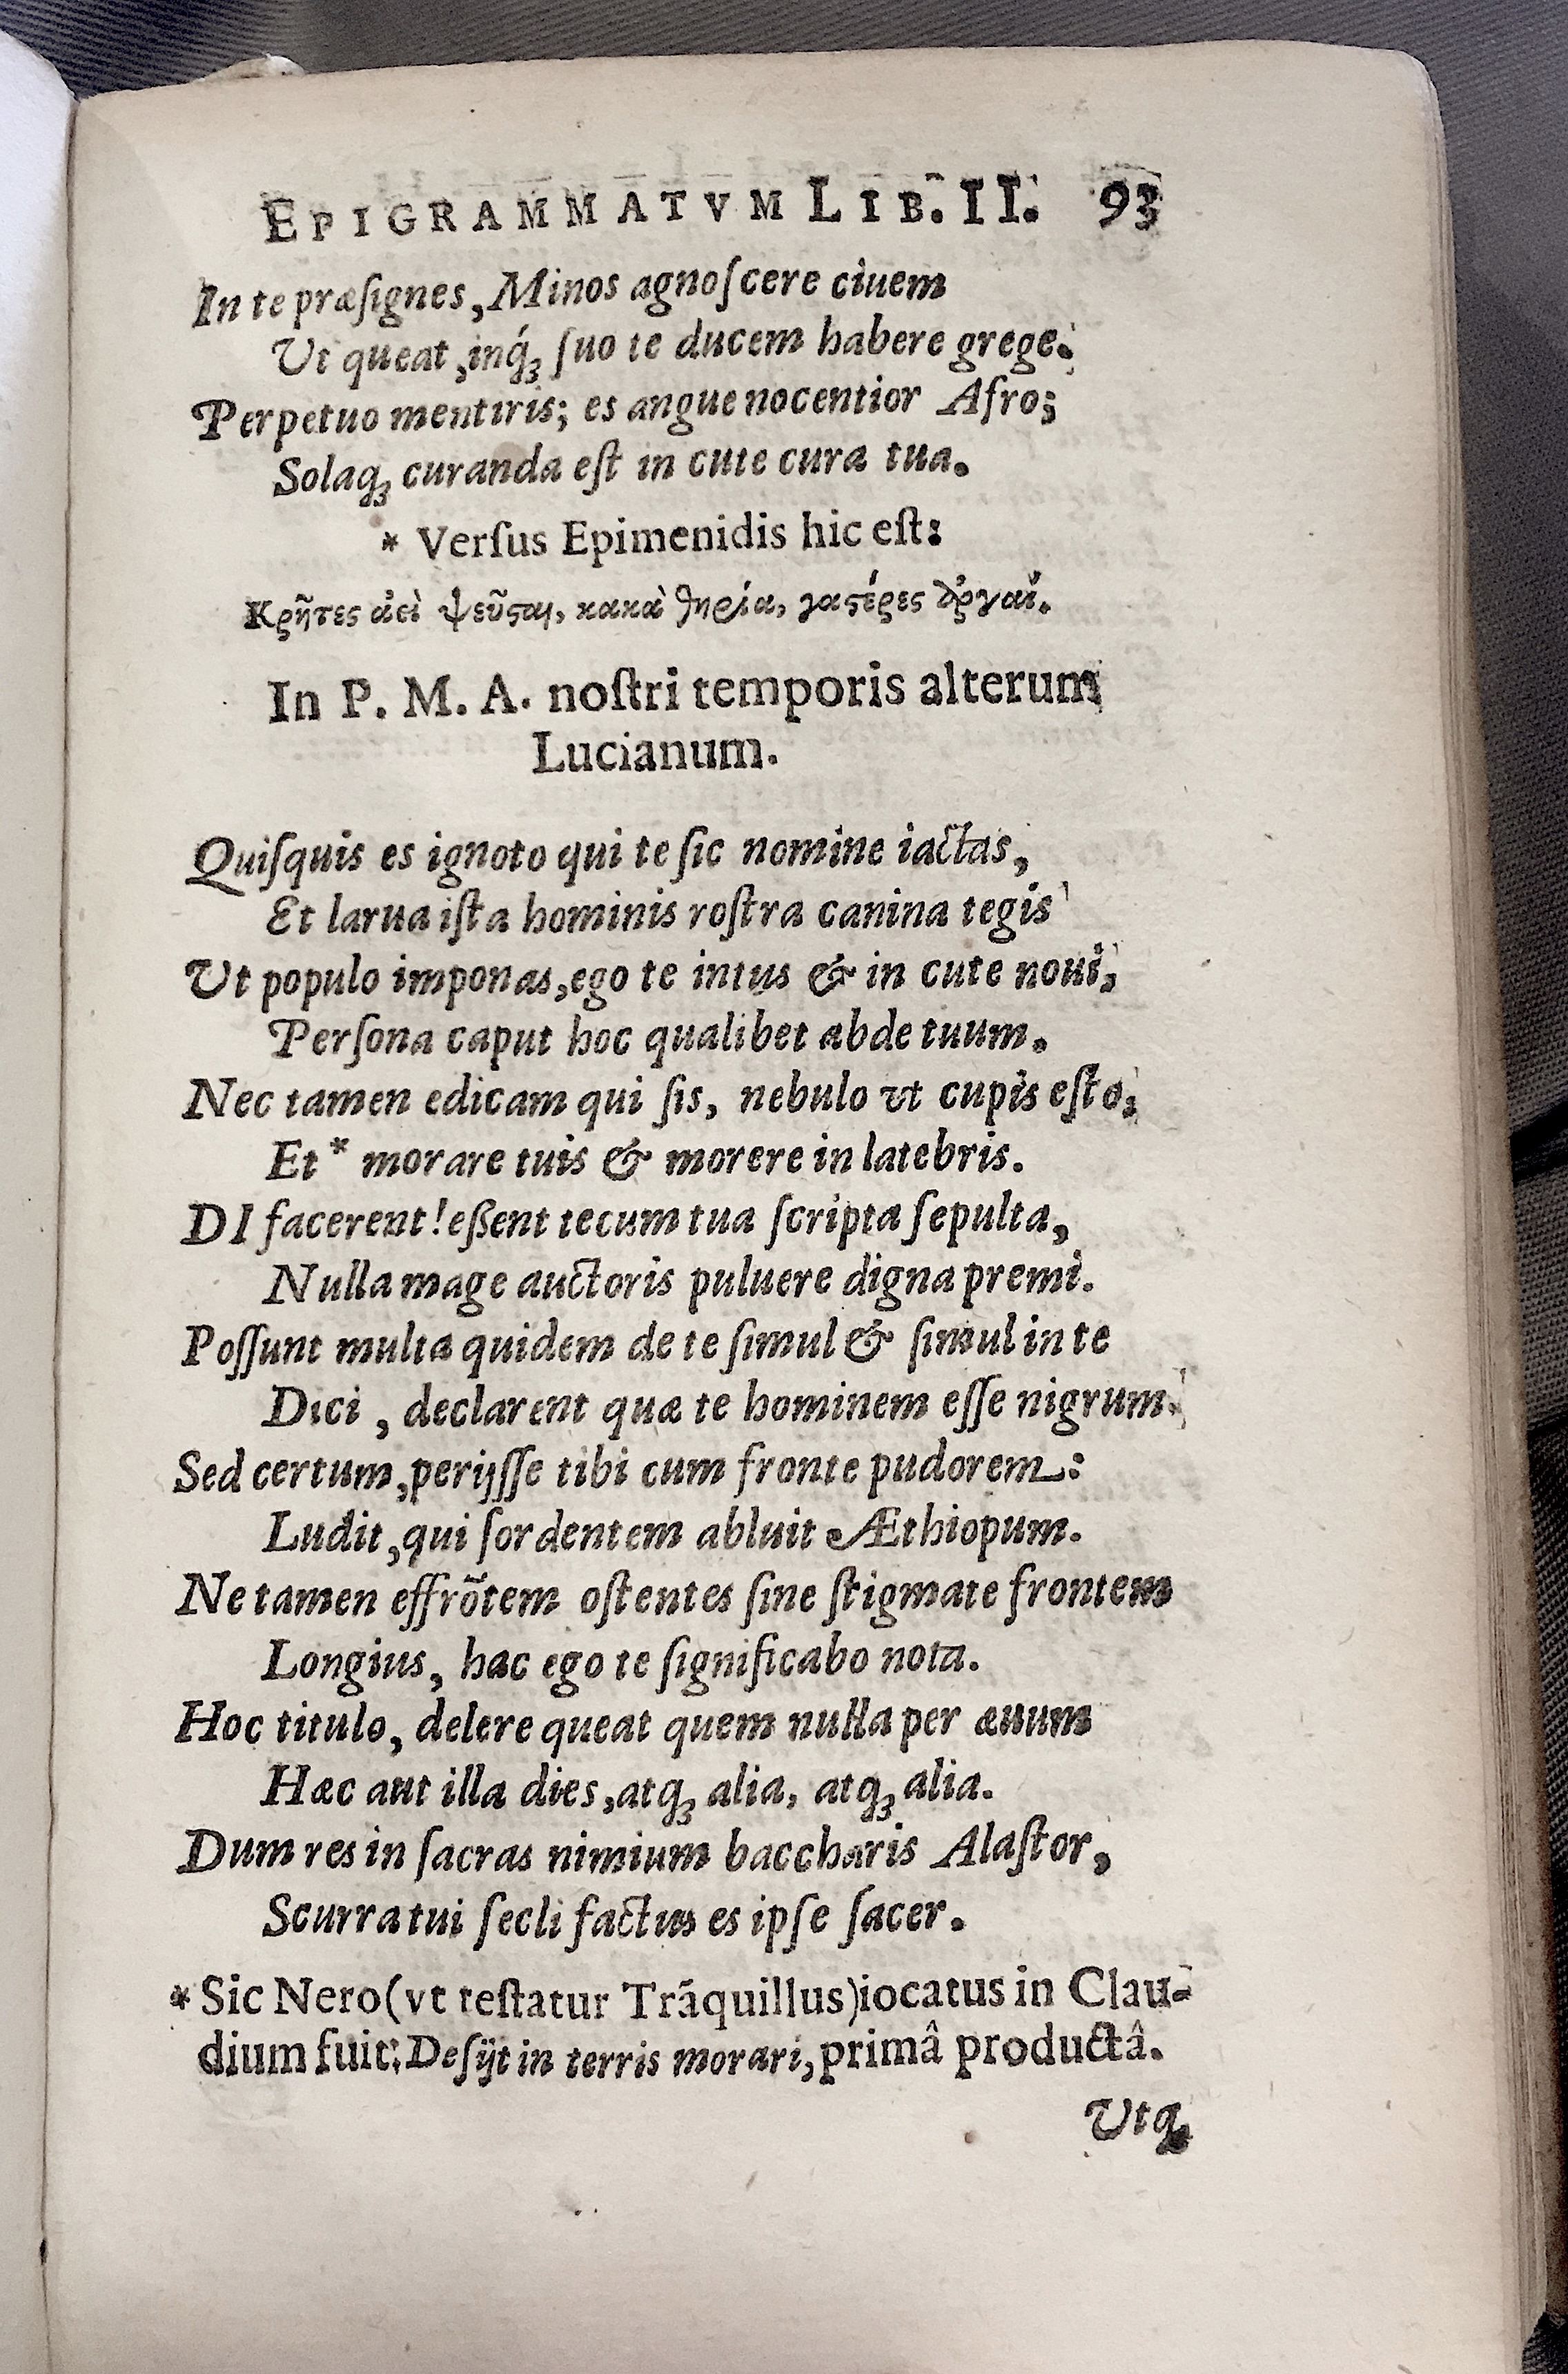 EPIGRAMMATVM LIB. II. 93
In te præſignes, Minos agnoſcere ciuem
Ut queat, inq́ꝫ ſuo te ducem habere grege.
Perpetuo mentiris; es angue nocentior Afro;
Solaqꝫ curanda eſt in cute cura tua.
* Verſus Epimenidis hic eſt:
Κρῆτες ἀεὶ ψεῦϛαι, κακὰ θηρία, γαϛέρες ἀργαί.
In P. M. A. noſtri temporis alterum
Lucianum.
Quiſquis es ignoto qui te ſic nomine iactas,
Et larua iſta hominis roſtra canina tegis
Ut populo imponas, ego te intus & in cute noui,
Perſona caput hoc qualibet abde tuum.
Nec tamen edicam qui ſis, nebulo vt cupis eſto,
Et * morare tuis & morere in latebris.
DI facerent! eßent tecum tua ſcripta ſepulta,
Nulla mage auctoris puluere digna premi.
Poſſunt multa quidem de te ſimul & ſimul in te
Dici, declarent quæ te hominem eſſe nigrum.
Sed certum, perijſſe tibi cum fronte pudorem:
Ludit, qui ſordentem abluit Æthiopum.
Ne tamen effrõtem oſtentes ſine ſtigmate frontem
Longius, hac ego te ſignificabo nota.
Hoc titulo, delere queat quem nulla per æuum
Hæc aut illa dies, atqꝫ alia, atqꝫ alia.
Dum res in ſacras nimium baccharis Alaſtor,
Scurra tui ſecli factus es ipſe ſacer.
* Sic Nero (vt teſtatur Trãquillus) iocatus in Clau-
dium fuit: Deſijt in terris morari, primâ productâ.
Utqꝫ